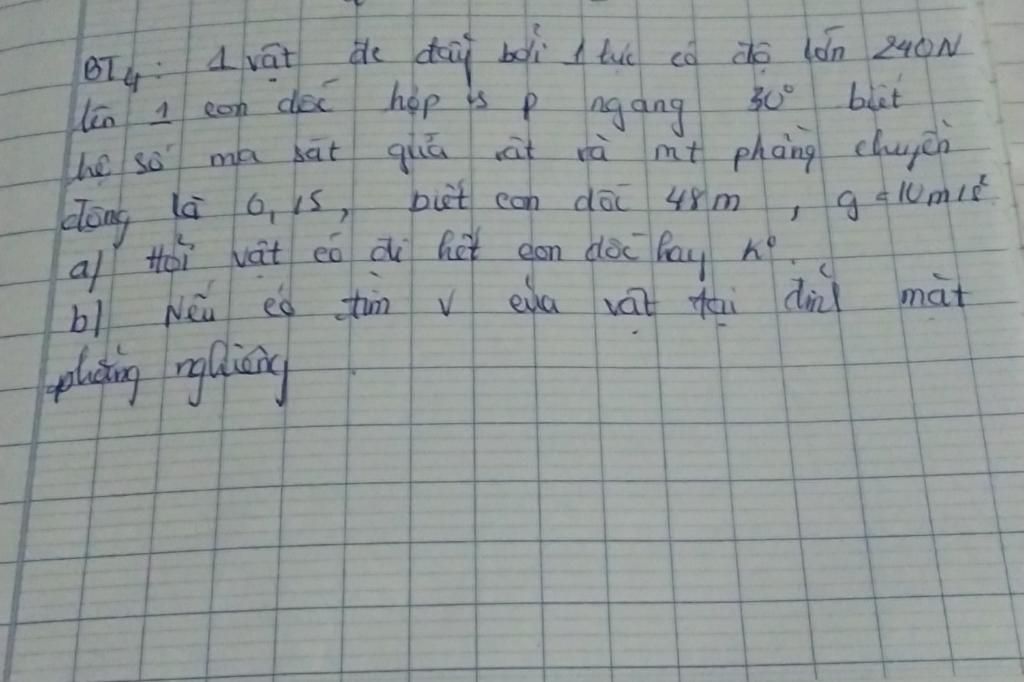 BT4: 1 vật đc đẩy bởi 1 lực có độ lớn 240N
lên 1 con dốc hợp vs p ngang 30° biết
hệ số ma sát giữa vật và mt phẳng chuyển
động là 0,15, biết con dốc 48m, g = 10m/s²
a) Hỏi vật có đi hết con dốc hay k°.
b) Nếu có tìm v của vật tại đỉnh mặt
phẳng nghiêng